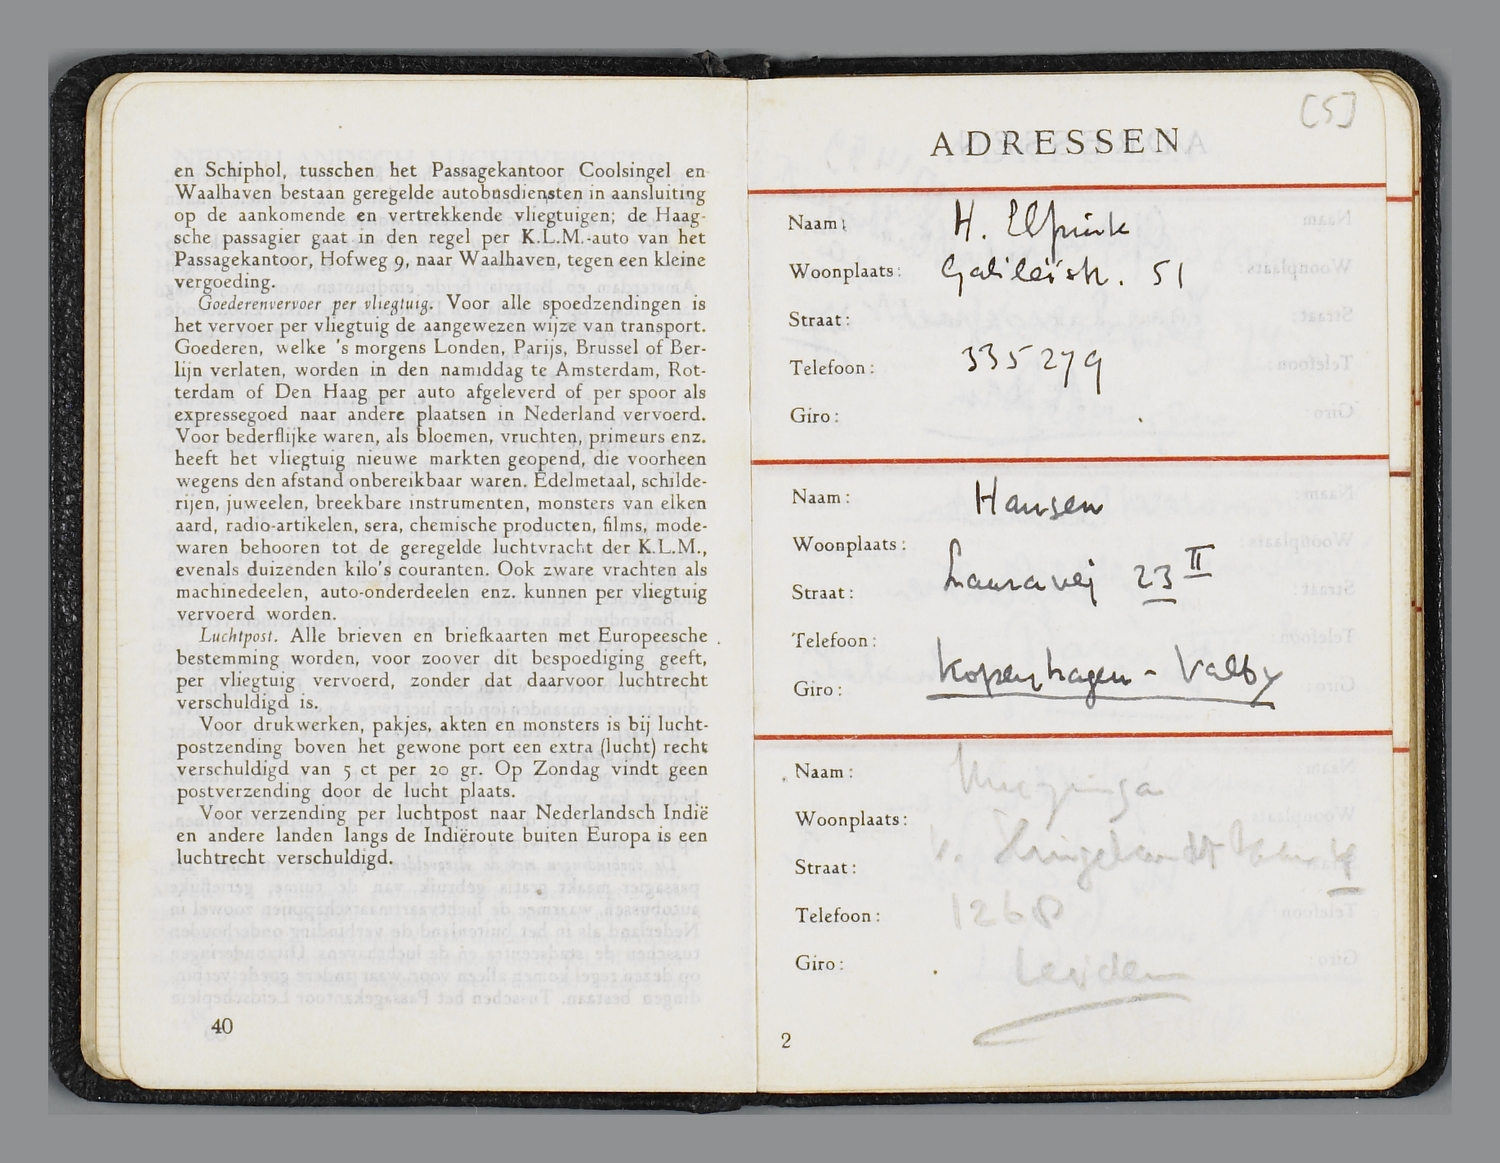 en Schiphol, tusschen het Passagekantoor Coolsingel en
Waalhaven bestaan geregelde autobusdiensten in aansluiting
op de aankomende en vertrekkende vliegtuigen; de Haag-
sche passagier gaat in den regel per K.L.M.-auto van het
Passagekantoor, Hofweg 9, naar Waalhaven, tegen een kleine
vergoeding.
Goederenvervoer per vliegtuig. Voor alle spoedzendingen is
het vervoer per vliegtuig de aangewezen wijze van transport.
Goederen, welke 's morgens Londen, Parijs, Brussel of Ber-
lijn verlaten, worden in den namiddag te Amsterdam, Rot-
terdam of Den Haag per auto afgeleverd of per spoor als
expressegoed naar andere plaatsen in Nederland vervoerd.
Voor bederflijke waren, als bloemen, vruchten, primeurs enz.
heeft het vliegtuig nieuwe markten geopend, die voorheen
wegens den afstand onbereikbaar waren. Edelmetaal, schilde-
rijen, juweelen, breekbare instrumenten, monsters van elken
aard, radio-artikelen, sera, chemische producten, films, mode-
waren behooren tot de geregelde luchtvracht der K.L.M.,
evenals duizenden kilo's couranten. Ook zware vrachten als
machinedeelen, auto-onderdeelen enz. kunnen per vliegtuig
vervoerd worden.
Luchtpost. Alle brieven en briefkaarten met Europeesche
bestemming worden, voor zoover dit bespoediging geeft,
per vliegtuig vervoerd, zonder dat daarvoor luchtrecht
verschuldigd is.
Voor drukwerken, pakjes, akten en monsters is bij lucht-
postzending boven het gewone port een extra (lucht) recht
verschuldigd van 5 ct per 20 gr. Op Zondag vindt geen
postverzending door de lucht plaats.
Voor verzending per luchtpost naar Nederlandsch Indië
en andere landen langs de Indiëroute buiten Europa is een
luchtrecht verschuldigd.
40
[5]
ADRESSEN
Naam: H. Elfrink
Woonplaats: Galileïstr. 51
Straat:
Telefoon: 335279
Giro:
Naam: Hansen
Woonplaats:
Straat: Lauravej 23 II
Telefoon:
Giro: Kopenhagen - Valby
Naam:
Woonplaats:
Straat: v.
Telefoon: 1268
Giro: Leiden
2